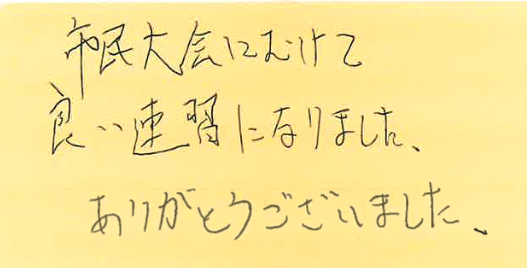 市民大会にむけて
良い連習になりました、
ありがとうございました、